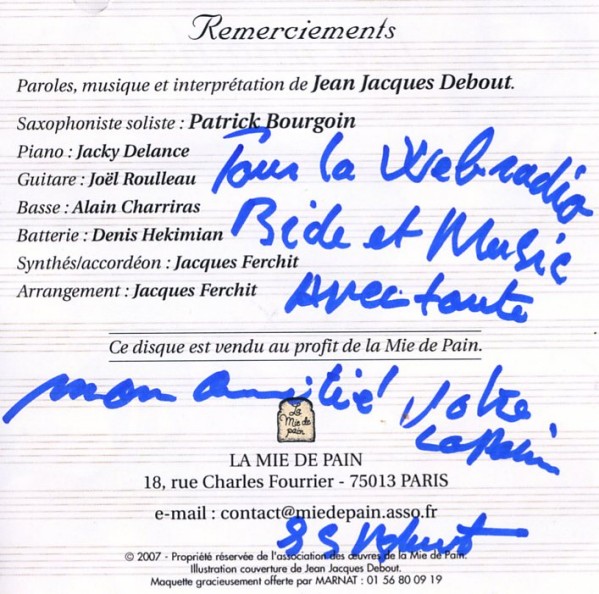 Remerciements
Paroles, musique et interprétation de Jean Jacques Debout.
Saxophoniste soliste : Patrick Bourgoin
Piano : Jacky Delance
Guitare : Joël Roulleau
Basse : Alain Charriras
Batterie : Denis Hekimian
Synthés/accordéon : Jacques Ferchit
Arrangement : Jacques Ferchit
Pour la Webradio
Bide et Music
Avec toute
Ce disque est vendu au profit de la Mie de Pain.
mon amitié
La
Mie de
pain
LA MIE DE PAIN
18, rue Charles Fourrier - 75013 PARIS
e-mail : contact@miedepain.asso.fr
© 2007 - Propriété réservée de l'association des œuvres de la Mie de Pain.
Illustration couverture de Jean Jacques Debout.
Maquette gracieusement offerte par MARNAT : 01 56 80 09 19